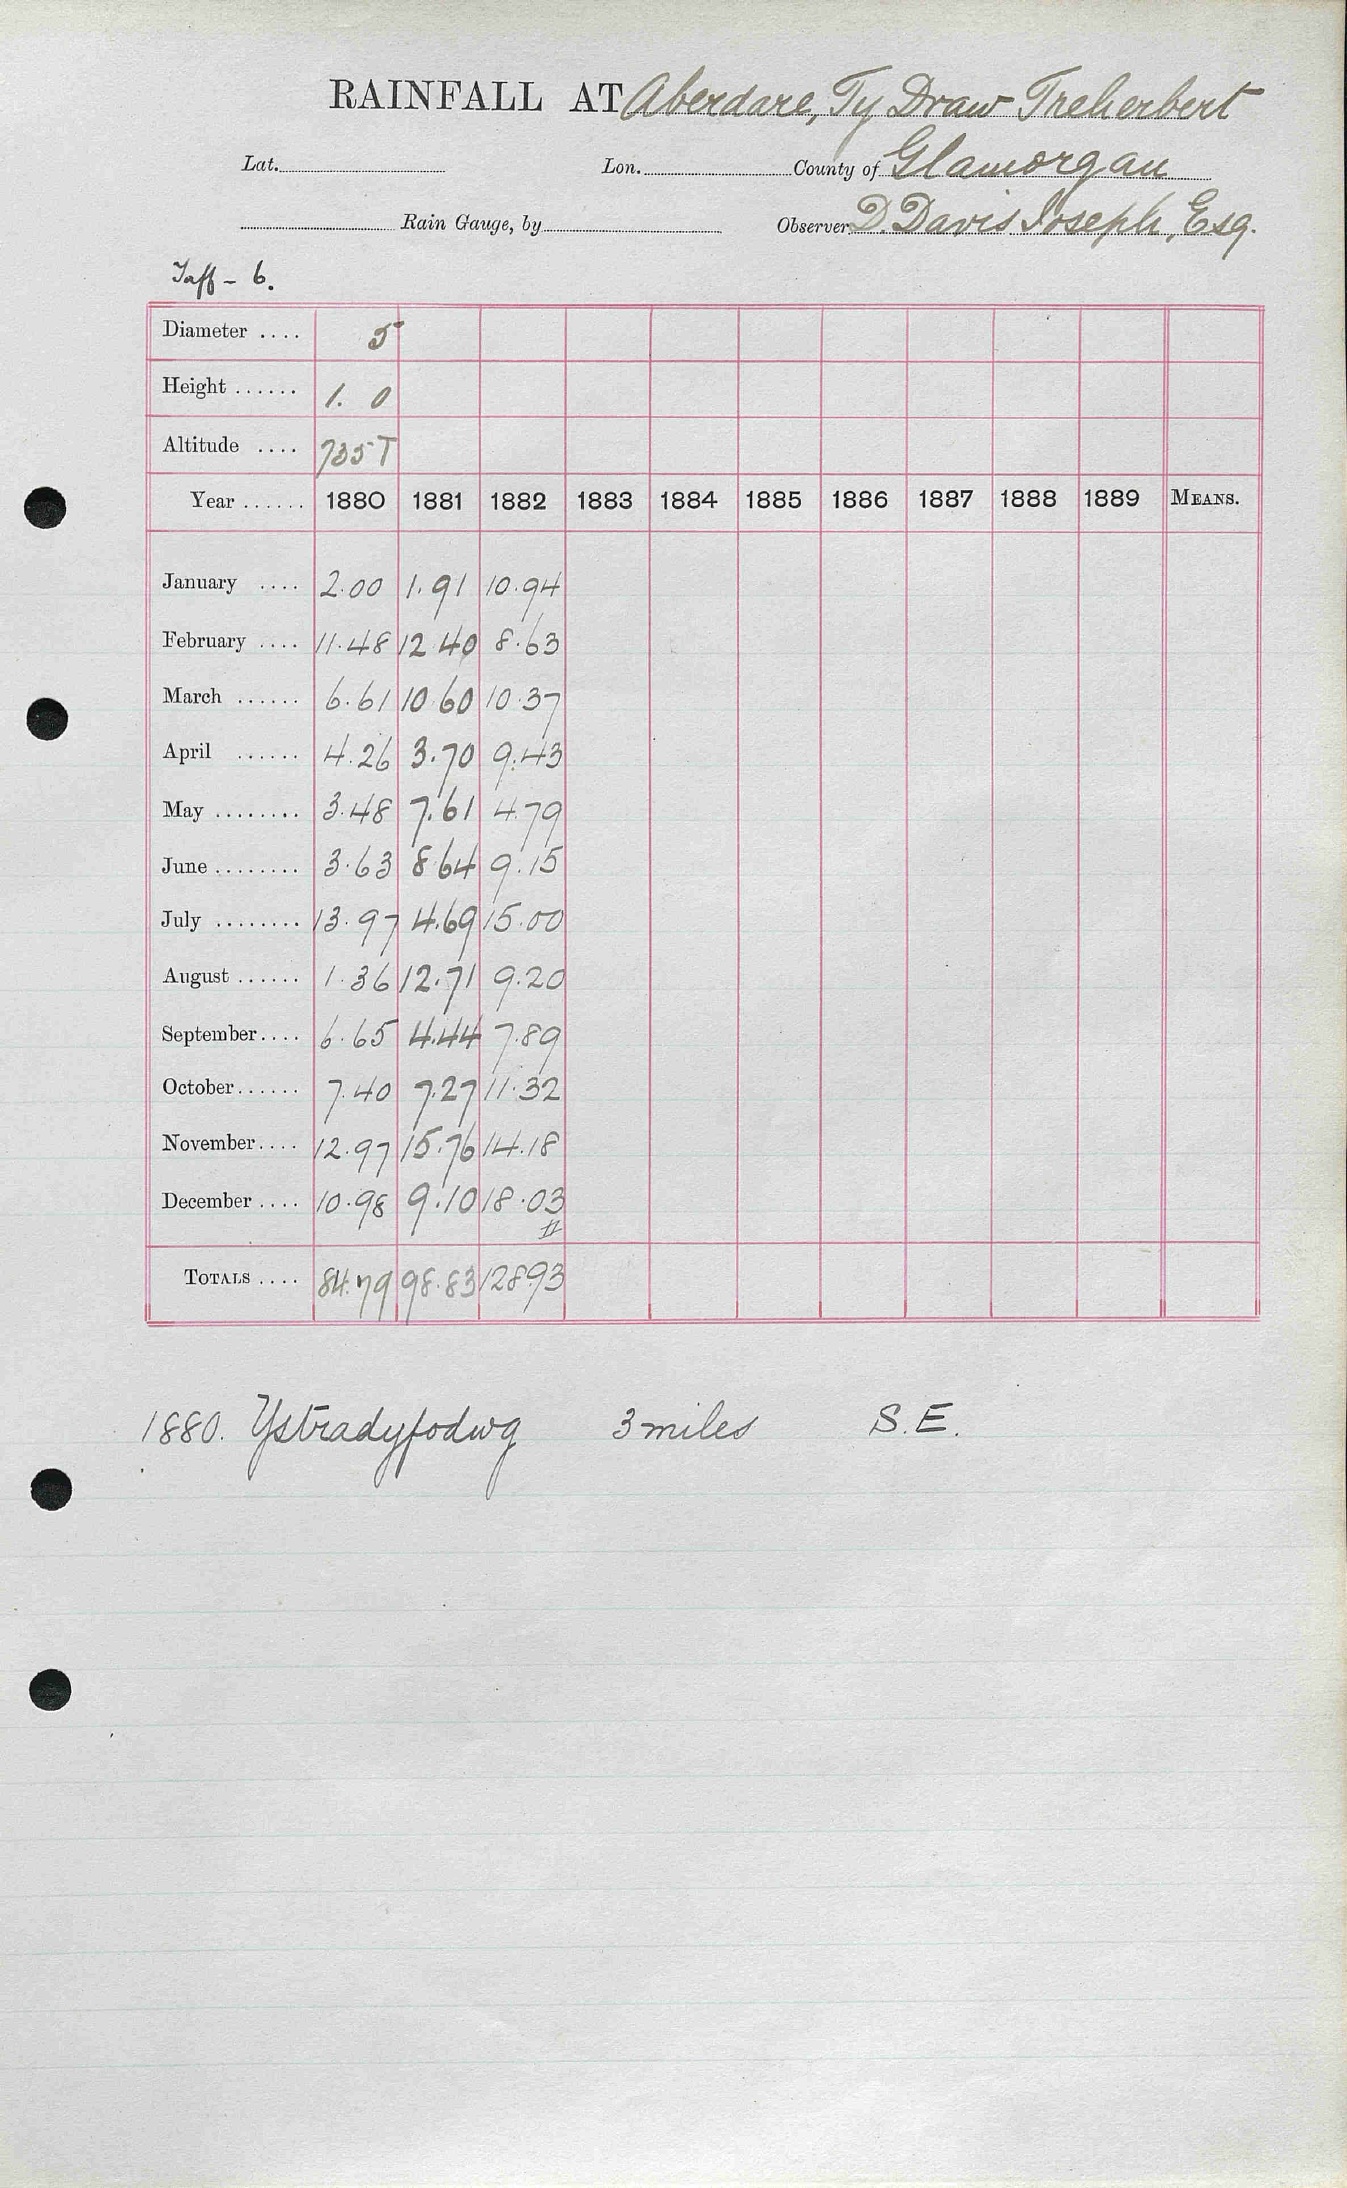 RAINFALL AT Aberdare, Ty Draw Treherbert
Lat. Lon. County of Glamorgan
Rain Gauge, by Observer D. Davis Joseph, Esq.
Taff - 6.
Diameter .... 5
Height ...... 1. 0
Altitude .... 735 T
Year ...... 1880 1881 1882 1883 1884 1885 1886 1887 1888 1889 MEANS.
January .... 2.00 1.91 10.94
February .... 11.48 12 40 8.63
March ...... 6.61 10 60 10.37
April ...... 4.26 3.70 9.43
May ........ 3.48 7.61 4.79
June ........ 3.63 8 64 9.15
July ........ 13.97 4.69 15.00
August ...... 1.36 12.71 9.20
September .... 6.65 4.44 7.89
October ...... 7.40 7.27 11.32
November .... 12.97 15.76 14.18
December .... 10.98 9.10 18.03
TOTALS .... 84.79 98.83 128.93
1880. Ystradyfodwg 3 miles S.E.